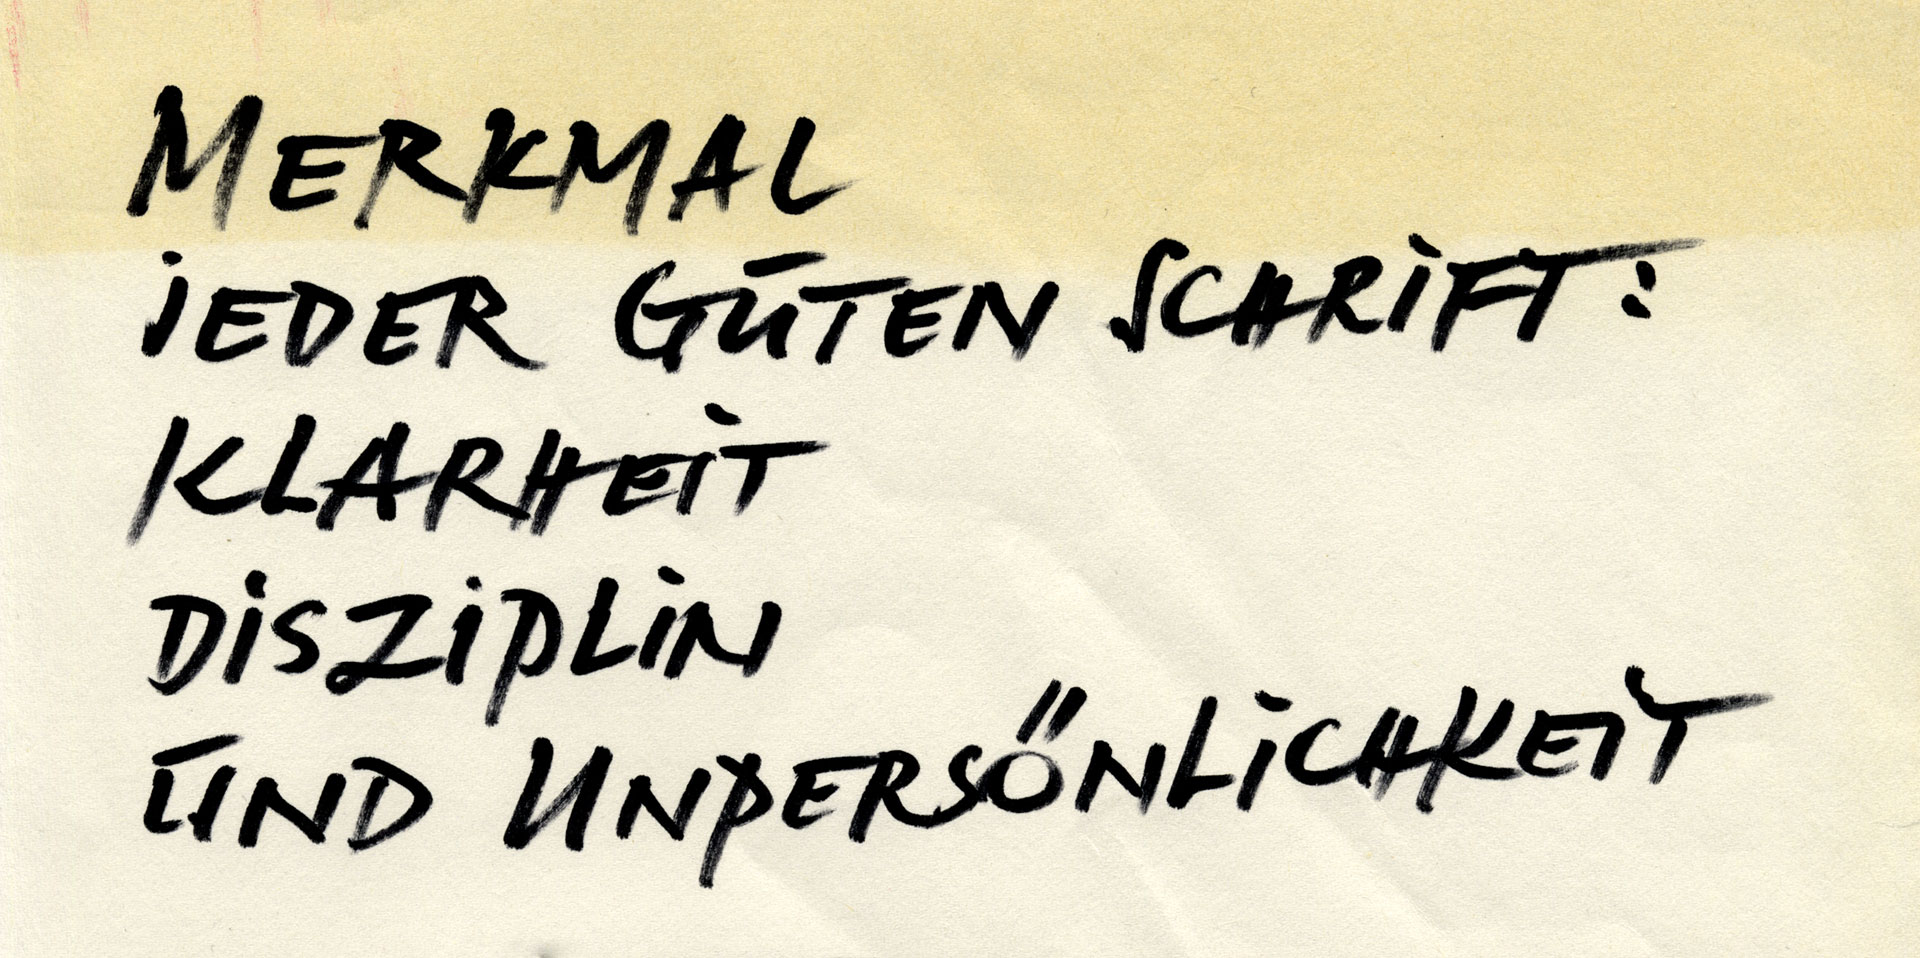 MERKMAL
JEDER GUTEN SCHRIFT:
KLARHEIT
DISZIPLIN
UND UNPERSÖNLICHKEIT